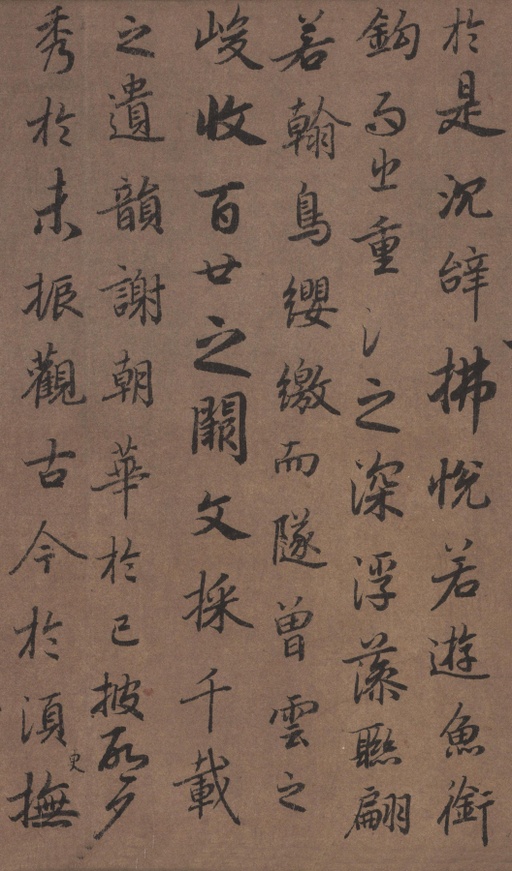 於是沉辭拂悅若遊魚銜
鉤而出重氵之深浮藻聯翩
若翰鳥纓繳而隧曾雲之
峻收百廿之闕文採千載
之遺韻謝朝華於已披啟夕
秀於未振觀古今於須臾撫